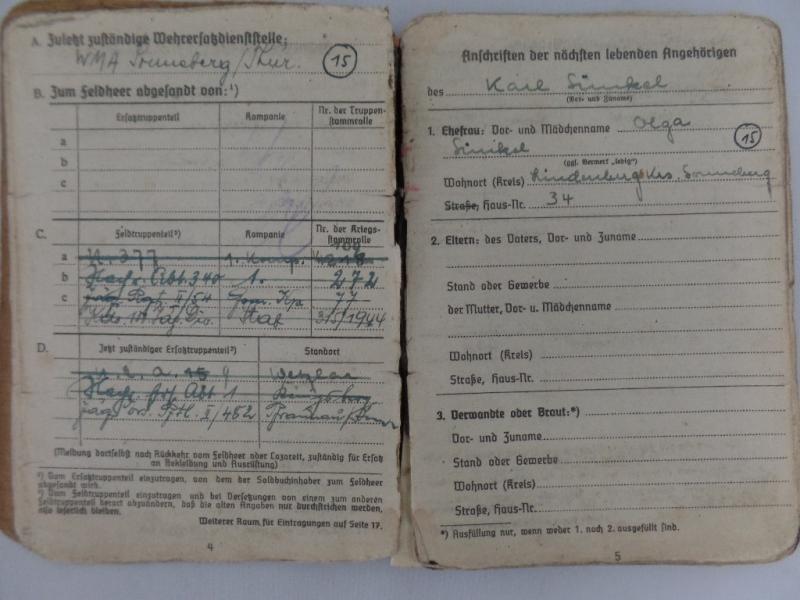 A. Zuletzt zuständige Wehrersatzdienststelle:
WMA Sonneberg/Thür. 15
B. Zum Feldheer abgesandt von:¹)
Ersatztruppenteil Kompanie Nr. der Truppen-
stammrolle
a
b
c
C. Feldtruppenteil²) Kompanie Nr. der Kriegs-
stammrolle
a N. 377 1. Komp.
b Nachr. Abt. 340 1. 272
c Jäg. Rgt. II/54 77
Stab 315/1944
D. Jetzt zuständiger Ersatztruppenteil²) Standort
Wetzlar
Abt 1 Königsberg
II/452
(Meldung dortselbst nach Rückkehr vom Feldheer oder Lazarett, zuständig für Ersatz
an Bekleidung und Ausrüstung)
¹) Vom Ersatztruppenteil einzutragen, von dem der Soldbuchinhaber zum Feldheer
abgesandt wird.
²) Vom Feldtruppenteil einzutragen und bei Versetzungen von einem zum anderen
Feldtruppenteil derart abzuändern, daß die alten Angaben nur durchstrichen werden,
also leserlich bleiben.
Weiterer Raum für Eintragungen auf Seite 17.
4
Anschriften der nächsten lebenden Angehörigen
des Karl Sinikel
(Vor- und Zuname)
1. Ehefrau: Vor- und Mädchenname Olga
Sinikel 15
(ggl. Vermerk „ledig“)
Wohnort (Kreis) Lindenberg Krs. Sonneberg
Straße, Haus-Nr. 34
2. Eltern: des Vaters, Vor- und Zuname
Stand oder Gewerbe
der Mutter, Vor- u. Mädchenname
Wohnort (Kreis)
Straße, Haus-Nr.
3. Verwandte oder Braut:*)
Vor- und Zuname
Stand oder Gewerbe
Wohnort (Kreis)
Straße, Haus-Nr.
*) Ausfüllung nur, wenn weder 1. noch 2. ausgefüllt sind.
5